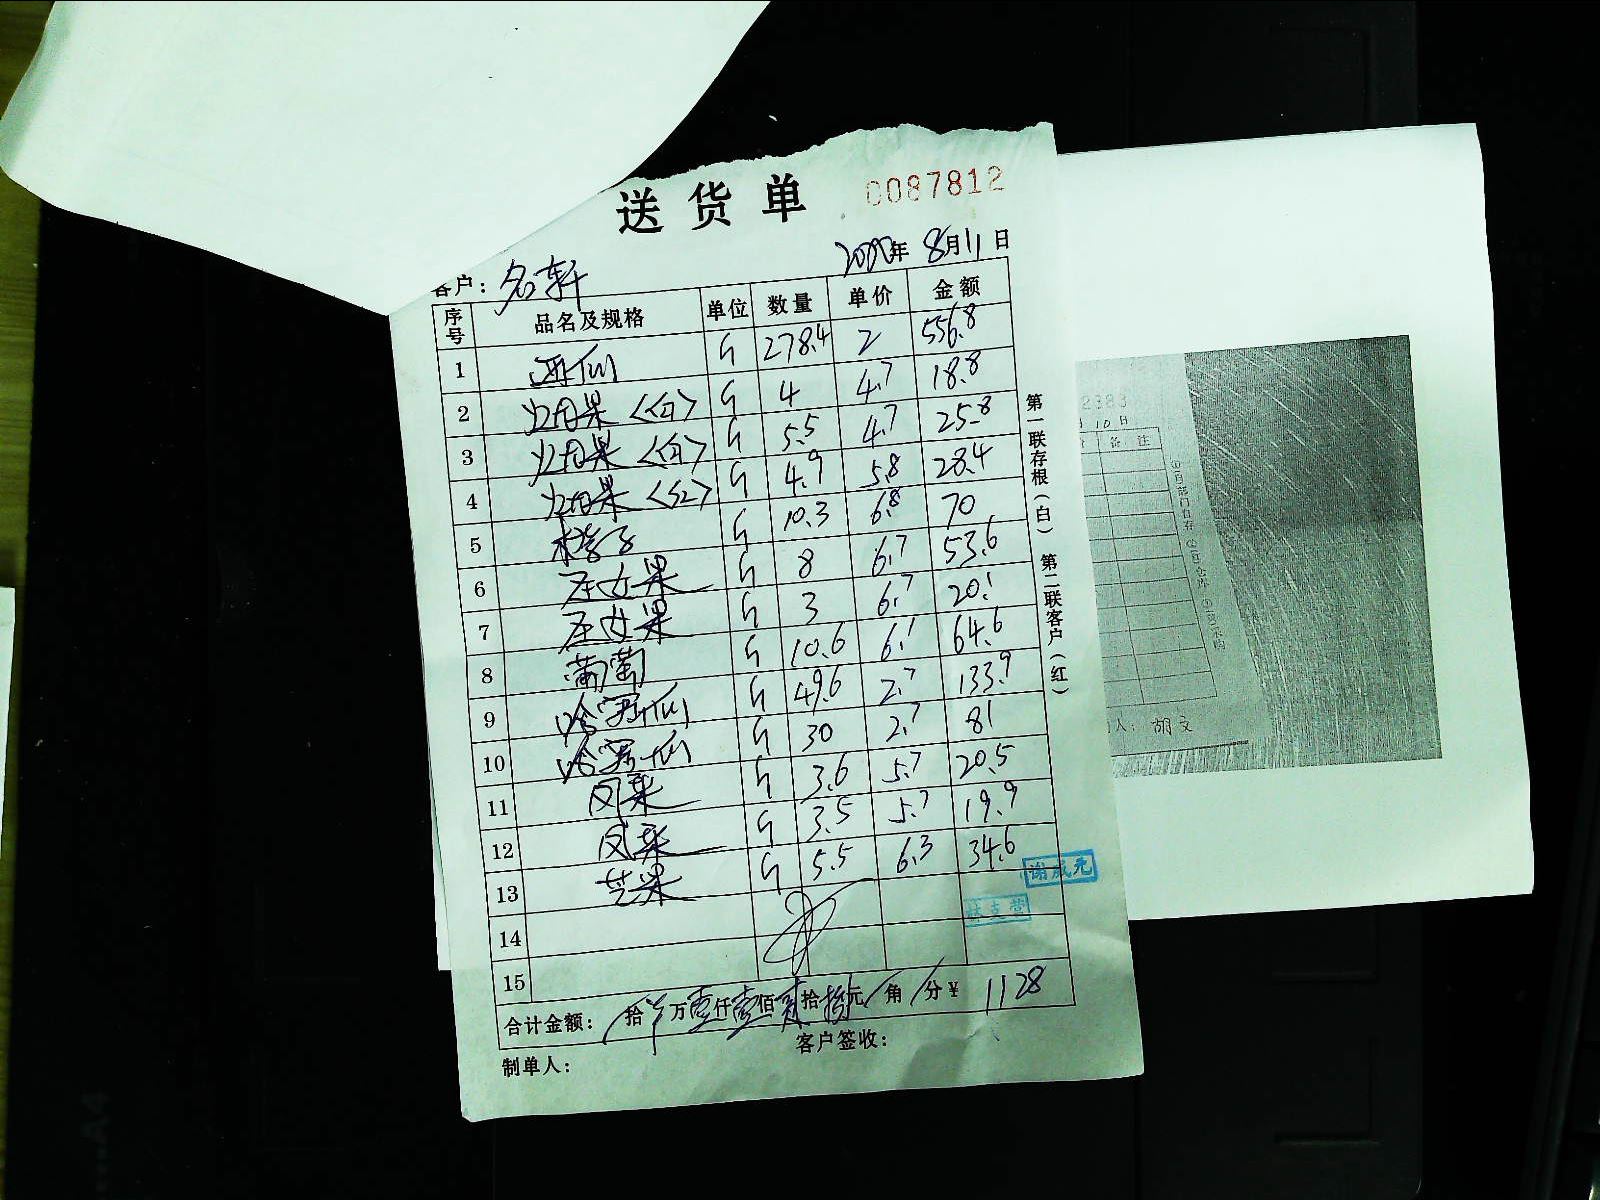 送货单 0087812
2020年8月11日
客户：名轩
序号 品名及规格 单位 数量 单价 金额
1 西瓜 斤 278.4 2 556.8
2 火龙果〈白〉 斤 4 4.7 18.8
3 火龙果〈白〉 斤 5.5 4.7 25.8
4 火龙果〈红〉 斤 4.9 5.8 28.4
5 斤 10.3 6.8 70
6 圣女果 斤 8 6.7 53.6
7 圣女果 斤 3 6.7 20.1
8 葡萄 斤 10.6 6.1 64.6
9 哈密瓜 斤 49.6 2.7 133.9
10 哈密瓜 斤 30 2.7 81
11 凤梨 斤 3.6 5.7 20.5
12 凤梨 斤 3.5 5.7 19.9
13 芒果 斤 5.5 6.3 34.6
谢成元
14
15
合计金额： 拾 万壹仟壹佰贰拾捌元 角 分¥ 1128
制单人： 客户签收：
第一联存根（白） 第二联客户（红）
2383
月10日
备 注
人：胡文
A4